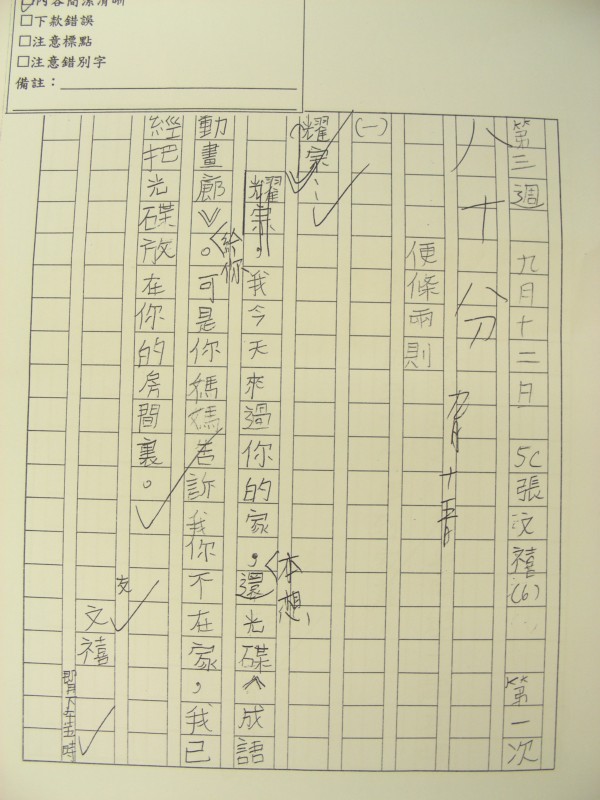 內容簡潔清晰
□下款錯誤
□注意標點
□注意錯別字
備註：
第三週 九月十二日 5C張文禧(6) 第一次
八十分 九月十五日
便條兩則
(一)
耀宗：
耀宗，我今天來過你的家，本想還光碟《成語
動畫廊》給你。可是你媽媽告訴我你不在家，我已
經把光碟放在你的房間裏。
友
文禧
即日下午五時